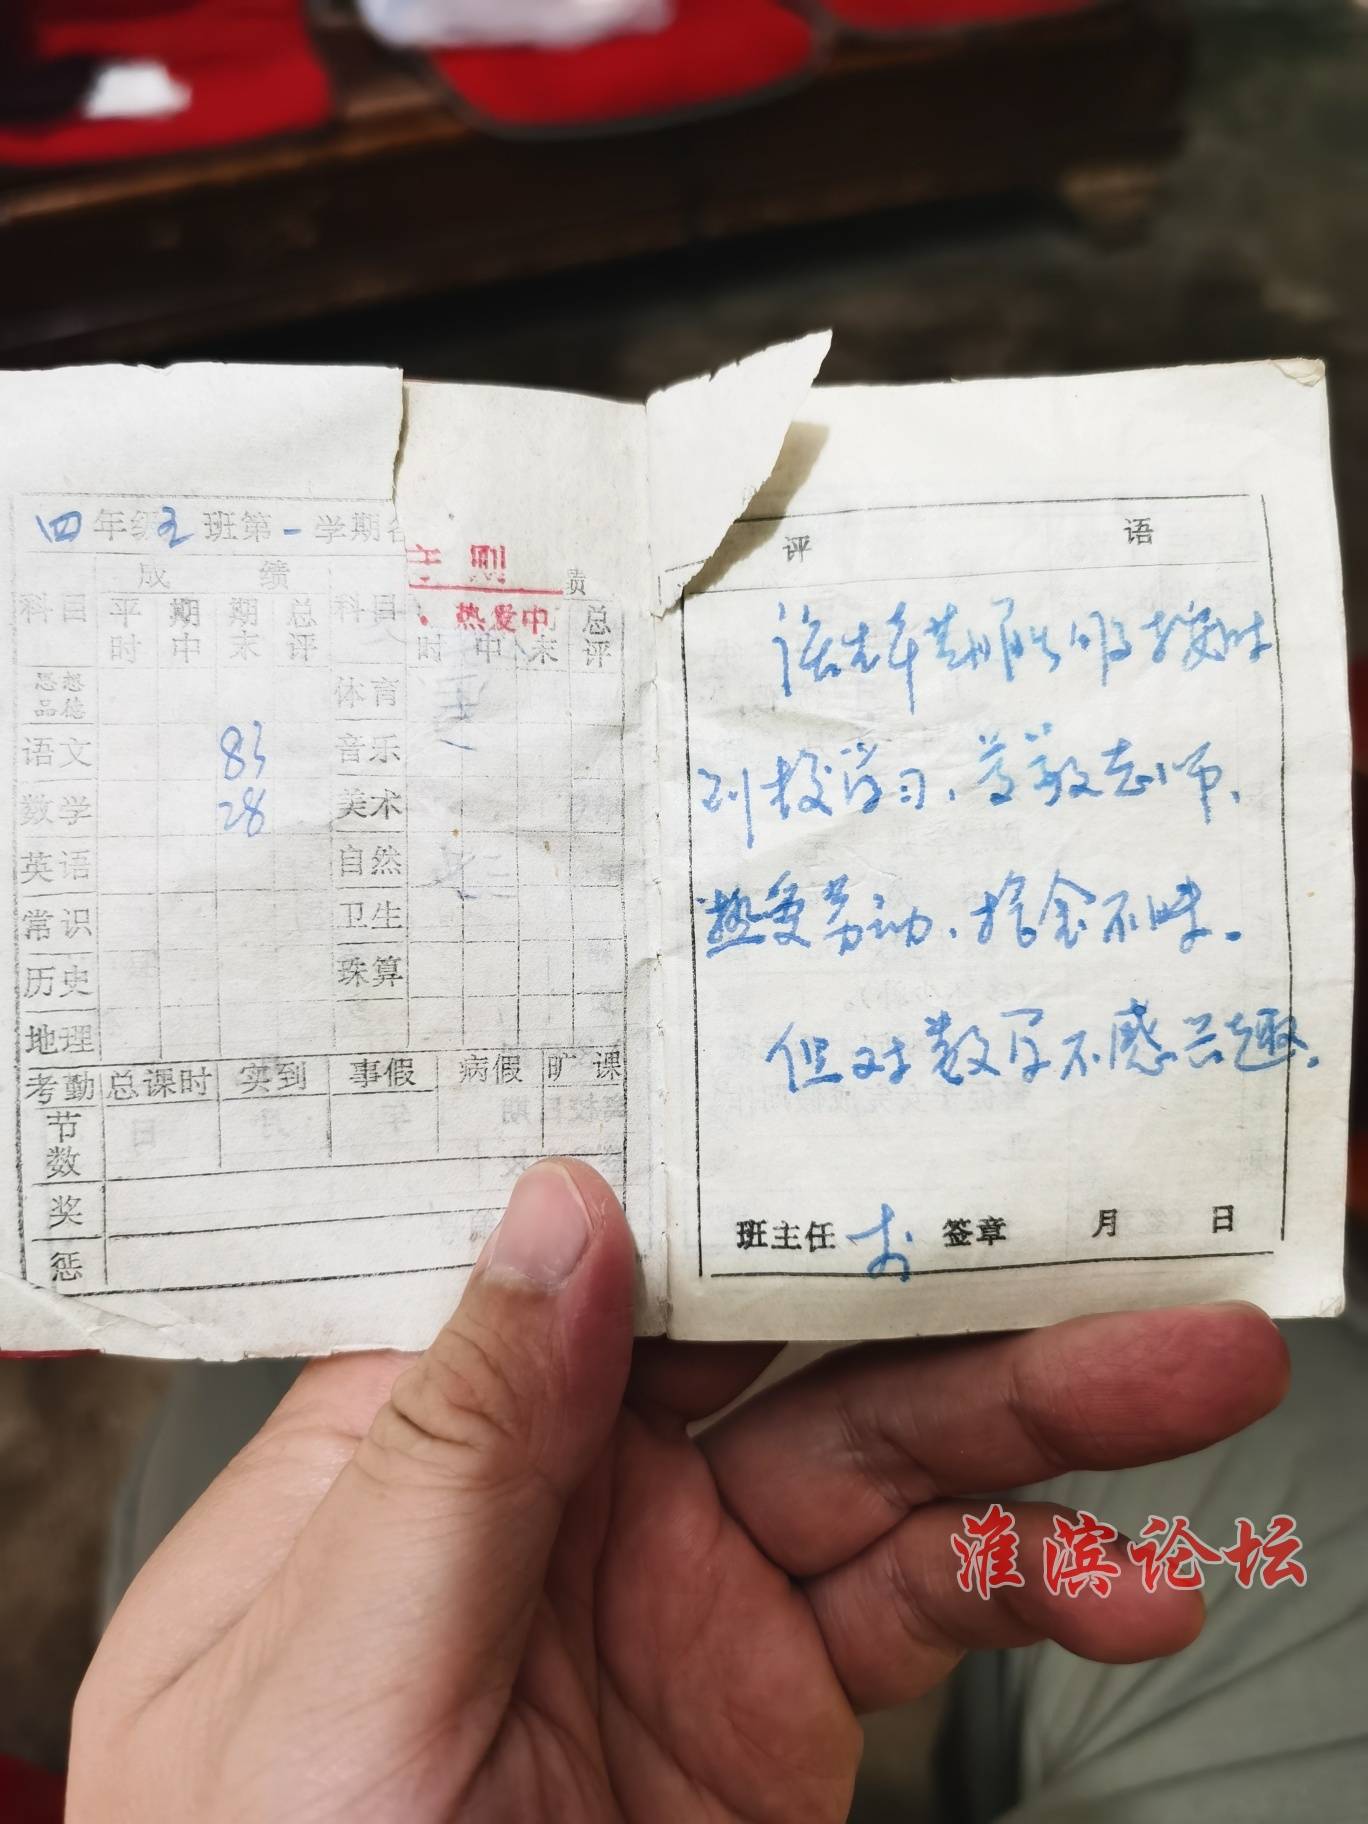 四年级五班第一学期各
成 绩
科目 平时 期中 期末 总评 科目 时 中 末 总评
绩
热发中
思想品德 体育
语文 83 音乐
数学 28 美术
英语 自然
常识 卫生
历史 珠算
地理
考勤 总课时 实到 事假 病假 旷课
节数
奖
惩
评 语
该生本期能够按时
到校学习、尊敬老师、
热爱劳动、拾金不昧。
但对数学不感兴趣。
班主任 签章 月 日
淮滨论坛